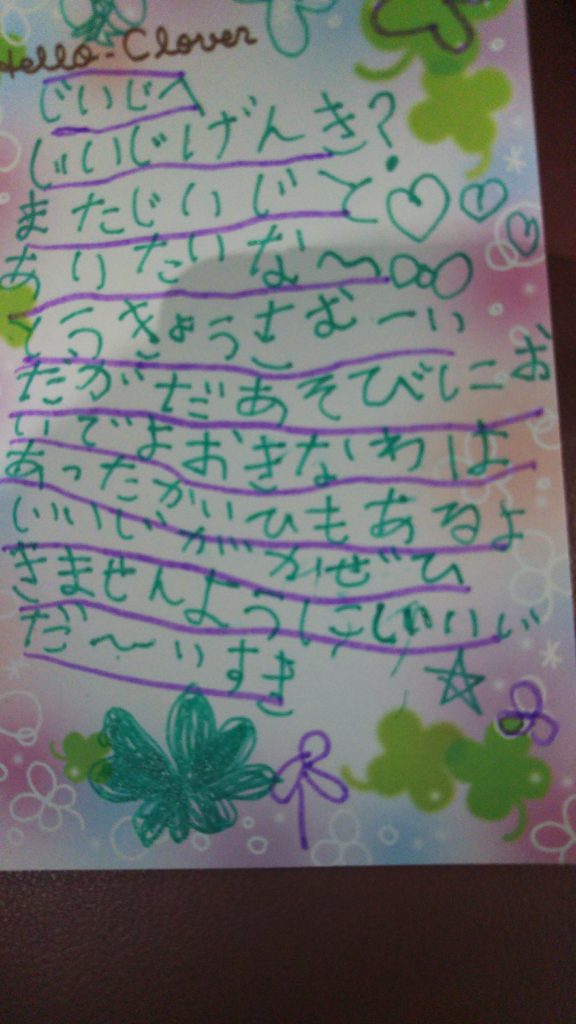 Hello-Clover
じいじへ
じいじげんき?
またじいじと
ありたいな〜
とうきょうさむーい
だがだあそびにお
いでよおきなわは
あったかいひもあるよ
じいじががぜひ
きませんように じいじ
だ〜いすき